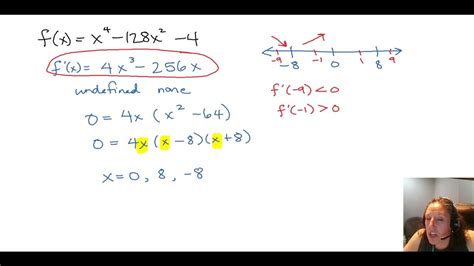 f(x) = x⁴ - 128x² - 4
f'(x) = 4x³ - 256x
undefined none
0 = 4x (x² - 64)
0 = 4x (x - 8)(x + 8)
x = 0, 8, -8
-9 -8 -1 0 1 8 9
f'(-9) < 0
f'(-1) > 0